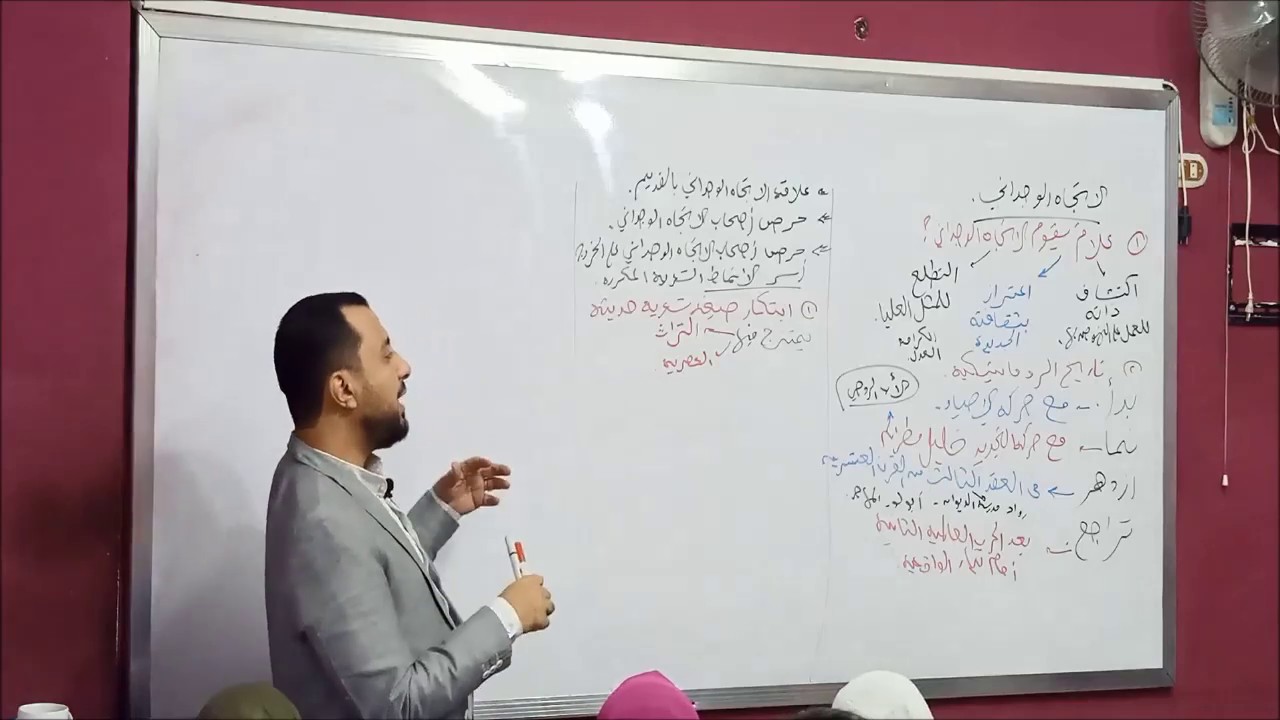 الاتجاه الوجداني.
① علام يقوم الاتجاه الوجداني؟
اكتشاف
ذاته
اعتزاز
بثقافته
الجديدة
التطلع
للمثل العليا.
الكرامة
العدل
② تاريخ الرومانتيكية.
بدأ مع حركة الإحياء.
نما مع حركة التجديد خليل مطران
الأب الروحي
ازدهر في العقد الثالث من القرن العشرين
رواد مدرسة الديوان - أبولو - المهاجر
تراجع بعد الحرب العالمية الثانية
أمام تيار الواقعية
علاقة الاتجاه الوجداني بالقديم.
حرص أصحاب الاتجاه الوجداني.
حرص أصحاب الاتجاه الوجداني على الخروج
الأنماط الشعرية المكررة
① ابتكار صيغة شعرية حديثة
يمتزج فيها التراث
العصرية.